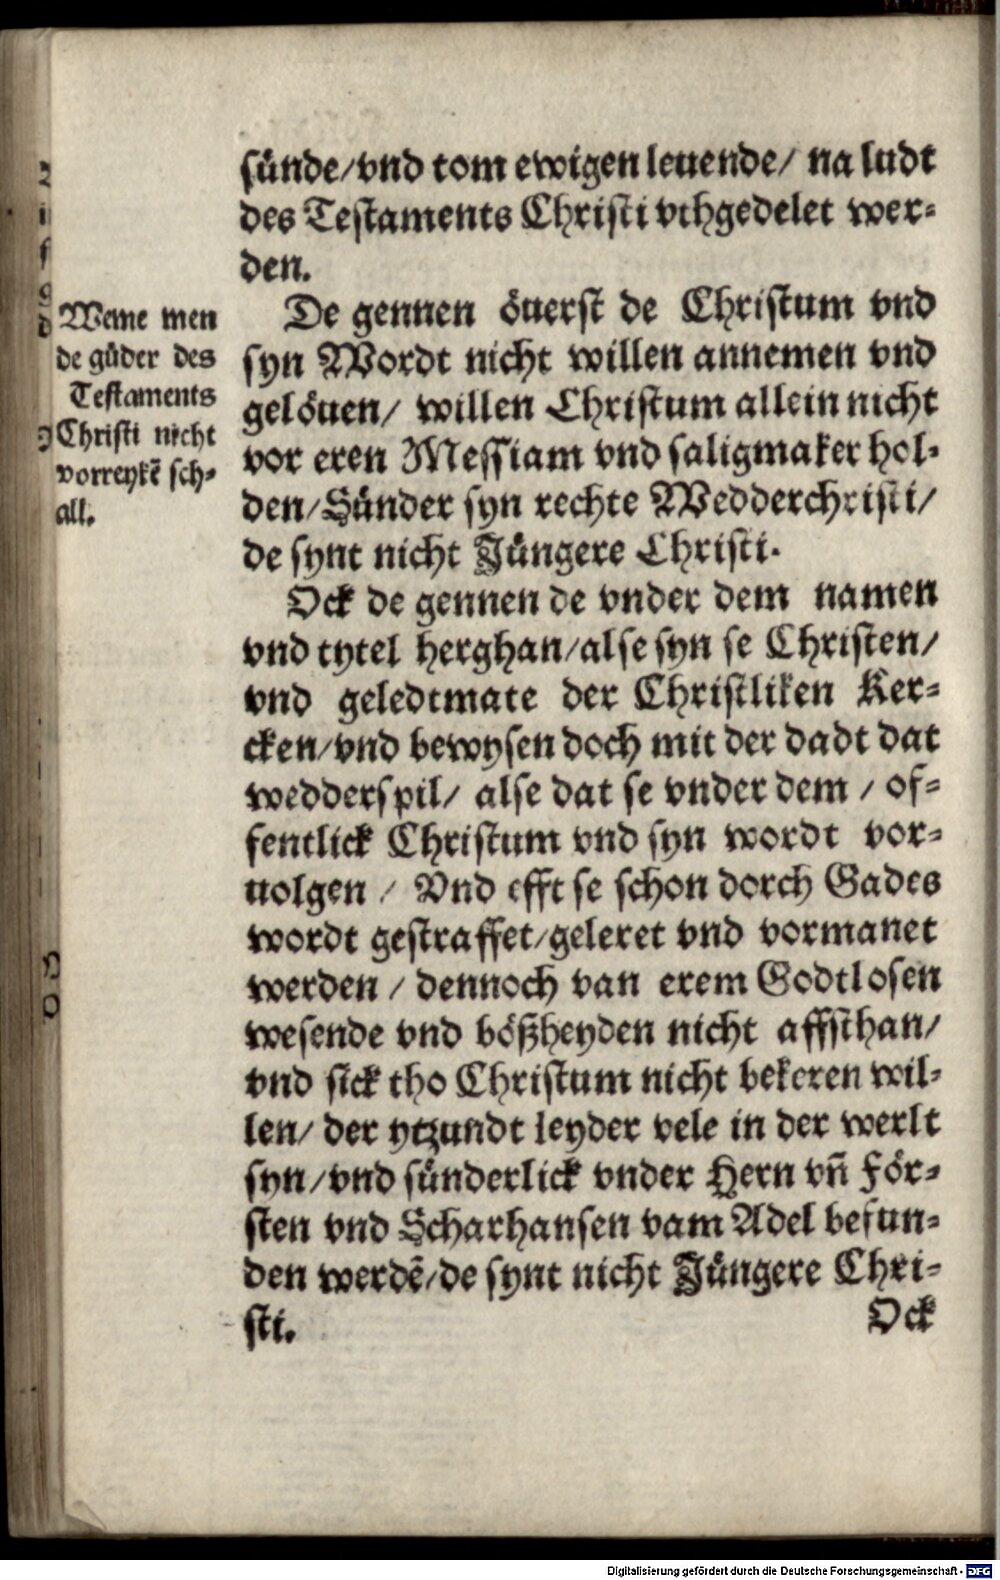 sünde/vnd tom ewigen leuende/ na ludt
des Testaments Christi vthgedelet wer-
den.
Weme men
de güder des
Testaments
Christi nicht
vorreykē sch-
all.
De gennen öuerst de Christum vnd
syn Wordt nicht willen annemen vnd
gelöuen/ willen Christum allein nicht
vor eren Messiam vnd saligmaker hol-
den/Sünder syn rechte Wedderchristi/
de synt nicht Jüngere Christi.
Ock de gennen de vnder dem namen
vnd tytel herghan/alse syn se Christen/
vnd geledtmate der Christliken Ker-
cken/vnd bewysen doch mit der dadt dat
wedderspil/ alse dat se vnder dem / of-
fentlick Christum vnd syn wordt vor-
uolgen / Vnd efft se schon dorch Gades
wordt gestraffet/geleret vnd vormanet
werden / dennoch van erem Godtlosen
wesende vnd bößheyden nicht affsthan/
vnd sick tho Christum nicht bekeren wil-
len/ der ytzundt leyder vele in der werlt
syn/vnd sünderlick vnder Hern vñ För-
sten vnd Scharhansen vam Adel befun-
den werdē/de synt nicht Jüngere Chri-
sti.
Ock
Digitalisierung gefördert durch die Deutsche Forschungsgemeinschaft - DFG